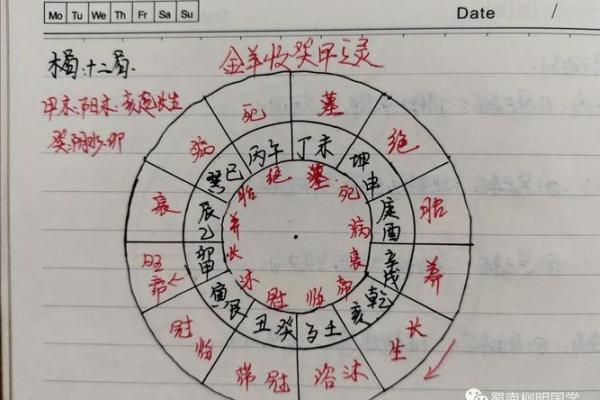 Mo Tu We Th Fr Sa Su
Date /
木局.十二局.
金羊收癸甲之灵
甲木.阳木.亥起长生
癸.阴水.卯
死 墓 绝 胎 养 长生 沐浴 冠带 临冠 帝旺 衰 病
丙午 丁未 坤申 庚酉 辛戌 乾亥 壬子 癸丑 艮寅 甲卯 乙辰 巽巳
绝 墓 死 病 衰 帝 临 冠 沐 长 养 胎
蜀南柳明国学